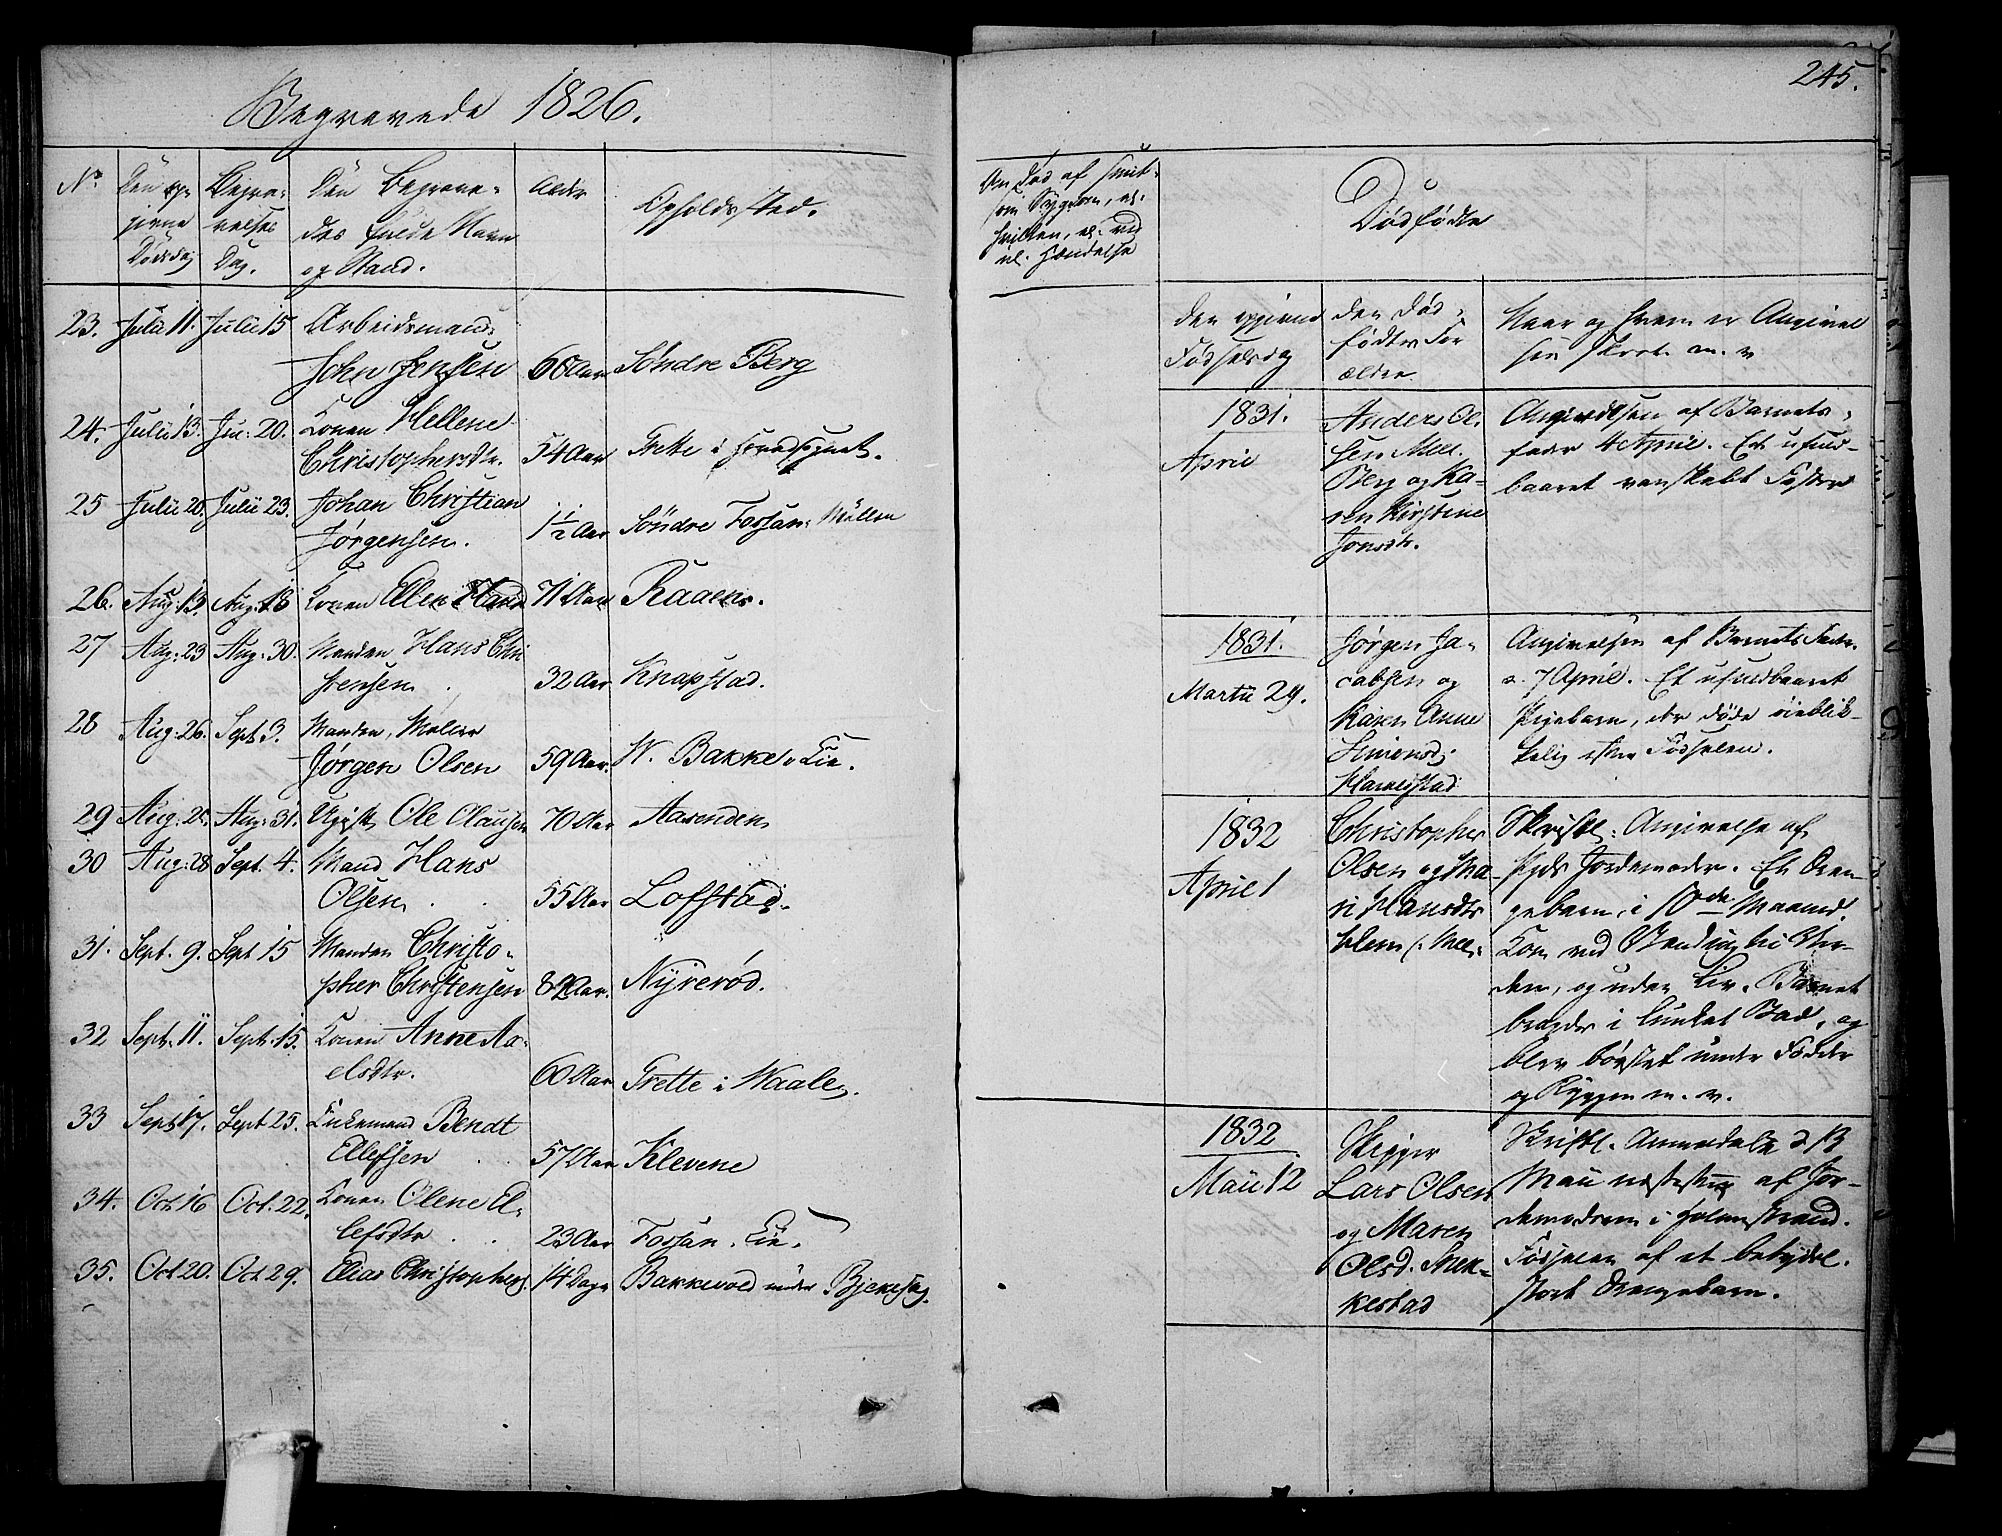 Begravede 1826.
No
Den op-
givne
Dødsdag
Begra-
velses
Dag.
Den Begrave-
des fulde Navn
og Stand.
Alder
Opholdssted.
23. Julii 11. Julii 15 Arbeidsmand
John Jensen 60 Aar Søndre Berg
24. Julii 13. Jul: 20. Konen Hellene
Christophersdtr. 54 Aar Trette i
25 Julii 20. Julii 23. Johan Christian
Jørgensen. 1½ Aar Søndre Fossan, Møllen
26. Aug: 13. Aug: 18 Konen Ellen 71 Aar Raaen.
27 Aug: 23 Aug: 30. Manden Hans Chri
stensen. 32 Aar Knapstad.
28 Aug: 26. Sept 3. Manden, Møller
Jørgen Olsen 59 Aar. N. Bakke, Lie.
29 Aug: 25. Aug: 31. Ole Clausen 70 Aar Aasenden
30 Aug: 28 Sept. 4. Mand Hans
Olsen. 55 Aar Loffstad.
31. Sept. 9. Sept 15 Manden Christo-
pher Christensen 82 Aar. Nyrerød.
32 Sept. 11. Sept. 15. Konen Anne Ax-
elsdtr. 60 Aar Trette i Waale.
33 Sept 17. Sept 25. Bendt
Ellefsen 57 Aar Klevene
34. Oct 16 Oct. 22. Konen Olene El-
lefsdtr 23 Aar Fossan, Lie.
35. Oct 20. Oct 29. Elias Christophers. 14 Dage Bakkevold under
245.
Om død af smit-
som Sygdom, el.
hvilken, el. ved
ul. Hændelse
Dødfødte
Den opgivne
Fødselsdag
Den Død-
fødtes For
ældre.
Naar og hvem er Angivel
sen skeet m. v
1831.
April
Anders Ol-
sen Mel.
Berg og Ka-
ren Kirstine
Jonsdtr.
Angivelsen af Barnets
Fader 4 April. Et ufuld-
baaret vanskabt Foster
1831.
Martii 29.
Jørgen Ja-
cobsen og
Karen Anne
Simensd:
Angivelsen af Barnets Fader
7 April. Et ufuldbaaret
Pigebarn, der døde øieblik-
kelig efter Fødselen.
1832
April 1
Christopher
Olsen og Ma-
ri Hansdtr
Hem
Skriftl: Angivelse af
Jordemoder. Et Dren
gebarn, i 10de Maaned.
Kom ved Vending til Ver-
den, og uden Liv. Barnet
bragdes i lunket Bad, og
blev børstet under Fødder
og Ryggen m. v.
1832.
Maii 12
Skipper
Lars Olsen
og Maren
Olsd. Snek-
kestad
Skriftl. Anmeldelse d 13
Maii af Jor-
demoderen i Holmestrand.
Fødselen af et betydel.
stort Drengebarn.